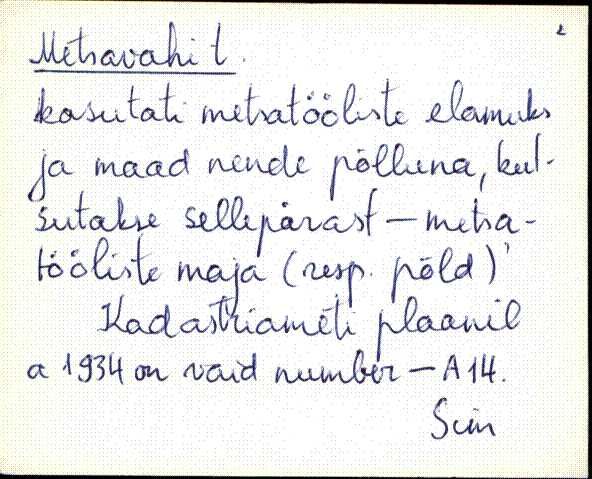 2
Metsavahi t.
kasutati metsatööliste elamuks
ja maad nende põlluna, kut-
sutakse sellepärast – metsa-
tööliste maja (resp. põld)'
Kadastriameti plaanil
a 1934 on vaid number – A 14.
Siin